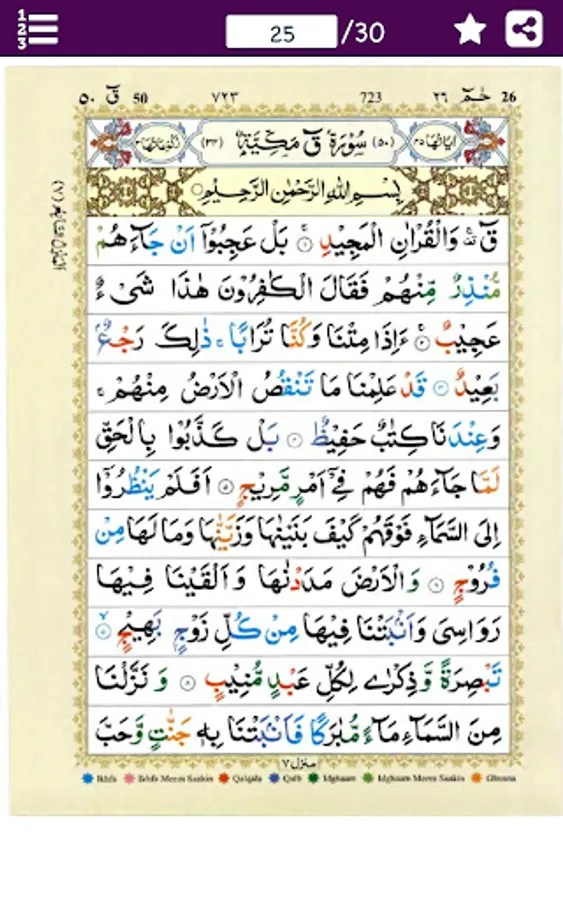 1 2 3 25 /30
26 حٰمٓ ٢٦ 723 ٧٢٣ 50 قٓ ٥٠
(٥٠) سُوْرَةُ قٓ مَكِّيَّةٌ (٣٤)
بِسْمِ اللهِ الرَّحْمٰنِ الرَّحِيْمِ
قٓ وَالْقُرْاٰنِ الْمَجِيْدِ ۝١ بَلْ عَجِبُوْٓا اَنْ جَآءَهُمْ
مُّنْذِرٌ مِّنْهُمْ فَقَالَ الْكٰفِرُوْنَ هٰذَا شَىْءٌ
عَجِيْبٌ ۝٢ ءَاِذَا مِتْنَا وَكُنَّا تُرَابًا ۚ ذٰلِكَ رَجْعٌۢ
بَعِيْدٌ ۝٣ قَدْ عَلِمْنَا مَا تَنْقُصُ الْاَرْضُ مِنْهُمْ ۚ
وَعِنْدَنَا كِتٰبٌ حَفِيْظٌ ۝٤ بَلْ كَذَّبُوْا بِالْحَقِّ
لَمَّا جَآءَهُمْ فَهُمْ فِىْٓ اَمْرٍ مَّرِيْجٍ ۝٥ اَفَلَمْ يَنْظُرُوْٓا
اِلَى السَّمَآءِ فَوْقَهُمْ كَيْفَ بَنَيْنٰهَا وَزَيَّنّٰهَا وَمَا لَهَا مِنْ
فُرُوْجٍ ۝٦ وَالْاَرْضَ مَدَدْنٰهَا وَاَلْقَيْنَا فِيْهَا
رَوَاسِىَ وَاَنْۢبَتْنَا فِيْهَا مِنْ كُلِّ زَوْجٍۢ بَهِيْجٍ ۝٧
تَبْصِرَةً وَّذِكْرٰى لِكُلِّ عَبْدٍ مُّنِيْبٍ ۝٨ وَنَزَّلْنَا
مِنَ السَّمَآءِ مَآءً مُّبٰرَكًا فَاَنْۢبَتْنَا بِهٖ جَنّٰتٍ وَّحَبَّ
منزل ٧
Ikhfa Ikhfa Meem Saakin Qalqala Qalb Idghaam Idghaam Meem Saakin Ghunna